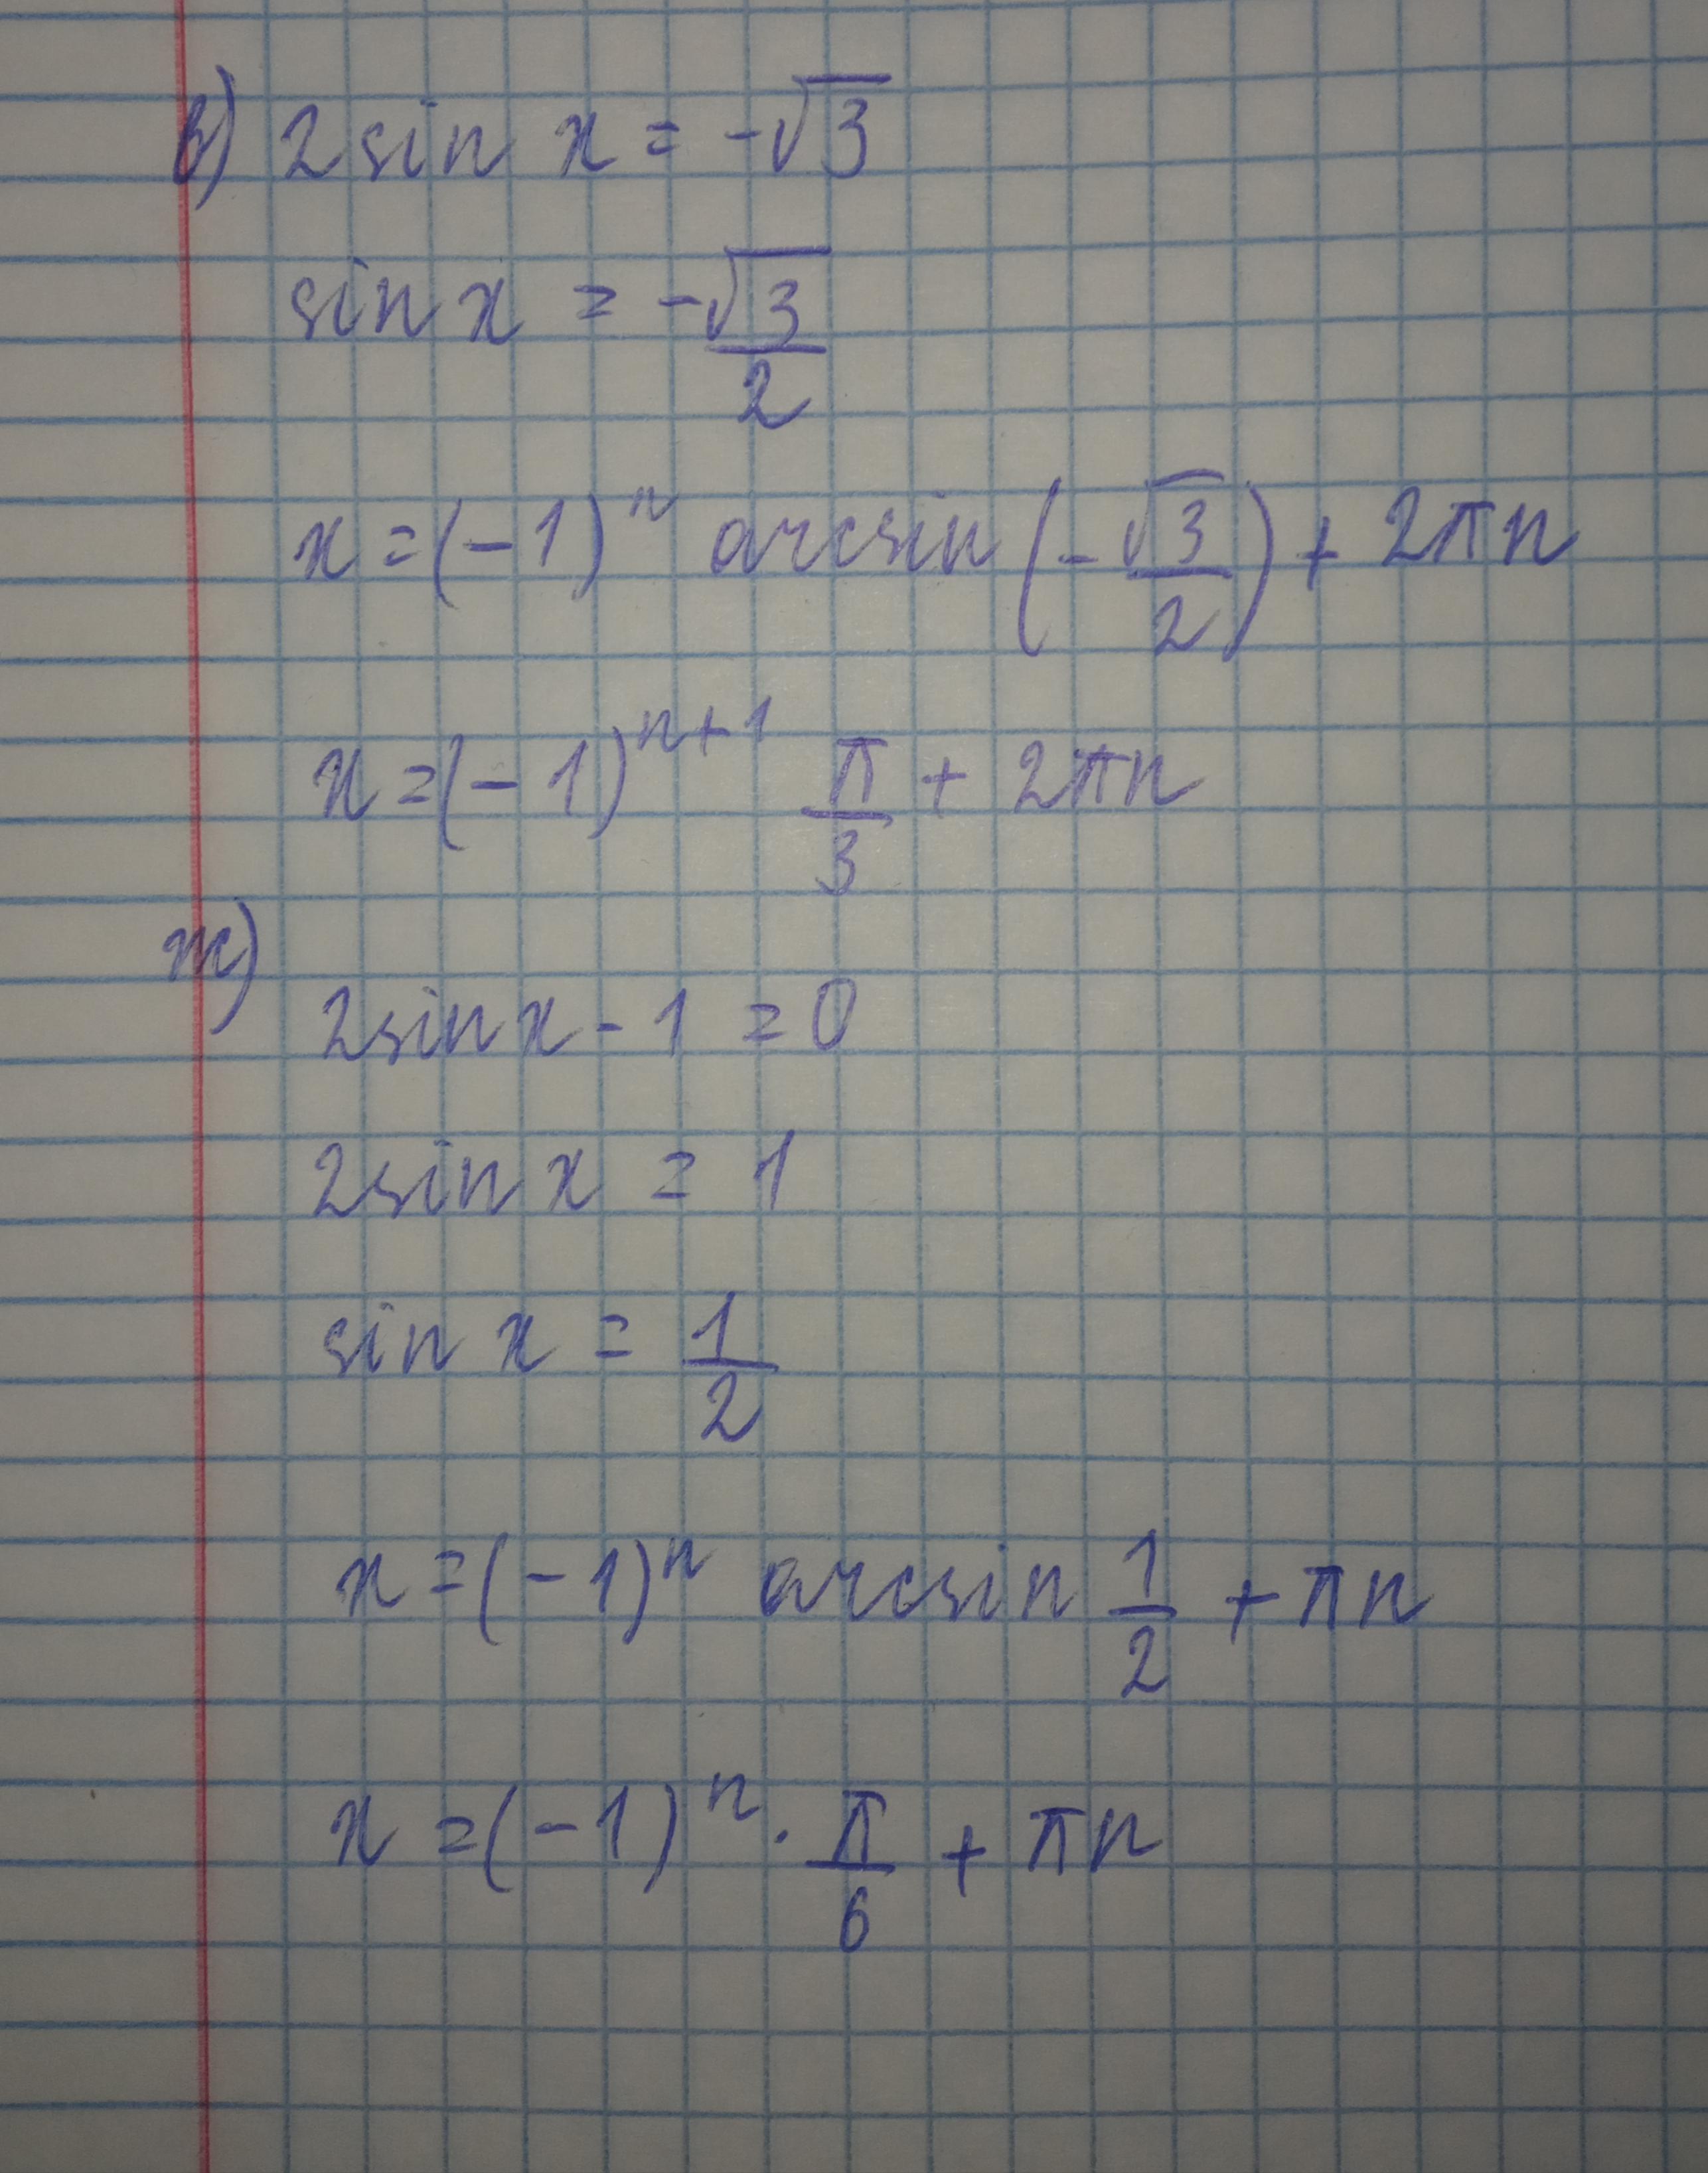 в) 2 sin x = -√3
sin x = -√3/2
x = (-1)ⁿ arcsin (-√3/2) + 2πn
x = (-1)ⁿ⁺¹ π/3 + 2πn
т)
2sin x - 1 = 0
2sin x = 1
sin x = 1/2
x = (-1)ⁿ arcsin 1/2 + πn
x = (-1)ⁿ · π/6 + πn